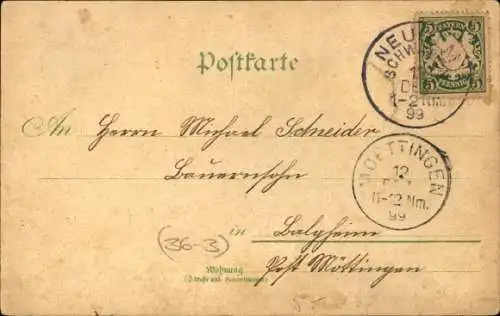 Postkarte
BAYERN
5 5
PFENNIG
5 5
NEU
SCHW
1-2 Nm.
99
An Herrn Michael Schneider
MOETTINGEN
12
11-12 Nm.
99
Bauernsohn
(36-3)
in Balgheim
Wohnung
Post Möttingen